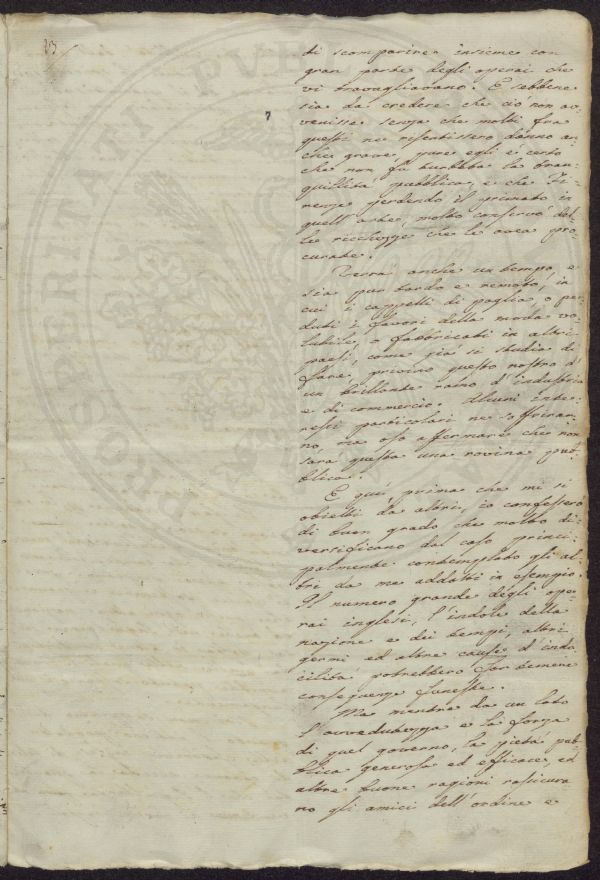 di scomparire insieme con
gran parte degli operai che
vi travagliavano. E sebbene
sia da credere che ciò non av-
venisse senza che molti fra
questi ne risentissero danno an-
che grave, pure egli è certo
che non fu turbata la tran-
quillità pubblica, e che Fi-
renze perdendo il primato in
quell'arte, molto conservò del-
le ricchezze che le avea pro-
curate.
Verrà anche un tempo, e
sia pur tardo e remoto, in
cui i cappelli di paglia, o per-
duti i favori della moda vo-
lubile, o fabbricati in altri
paesi, come già si studia di
fare, privino questo nostro d'
un brillante ramo d'industria
e di commercio. Alcuni inte-
ressi particolari ne soffriran-
no, ma oso affermare che non
sarà questa una rovina pub-
blica.
E quì prima che mi si
obietti da altri, io confesserò
di buon grado che molto di-
versificano dal caso princi-
palmente contemplato gli al-
tri da me addotti in esempio.
Il numero grande degli ope-
rai inglesi, l'indole della
nazione e dei tempi, altri
germi ed altre cause d'indo-
cilità potrebbero far temere
conseguenze funeste.
Ma mentre da un lato
l'avvedutezza e la forza
di quel governo, la pietà pub-
blica generosa ed efficace, ed
altre buone ragioni rassicura-
no gli amici dell'ordine e
PROSPERITATI PVBLICAE